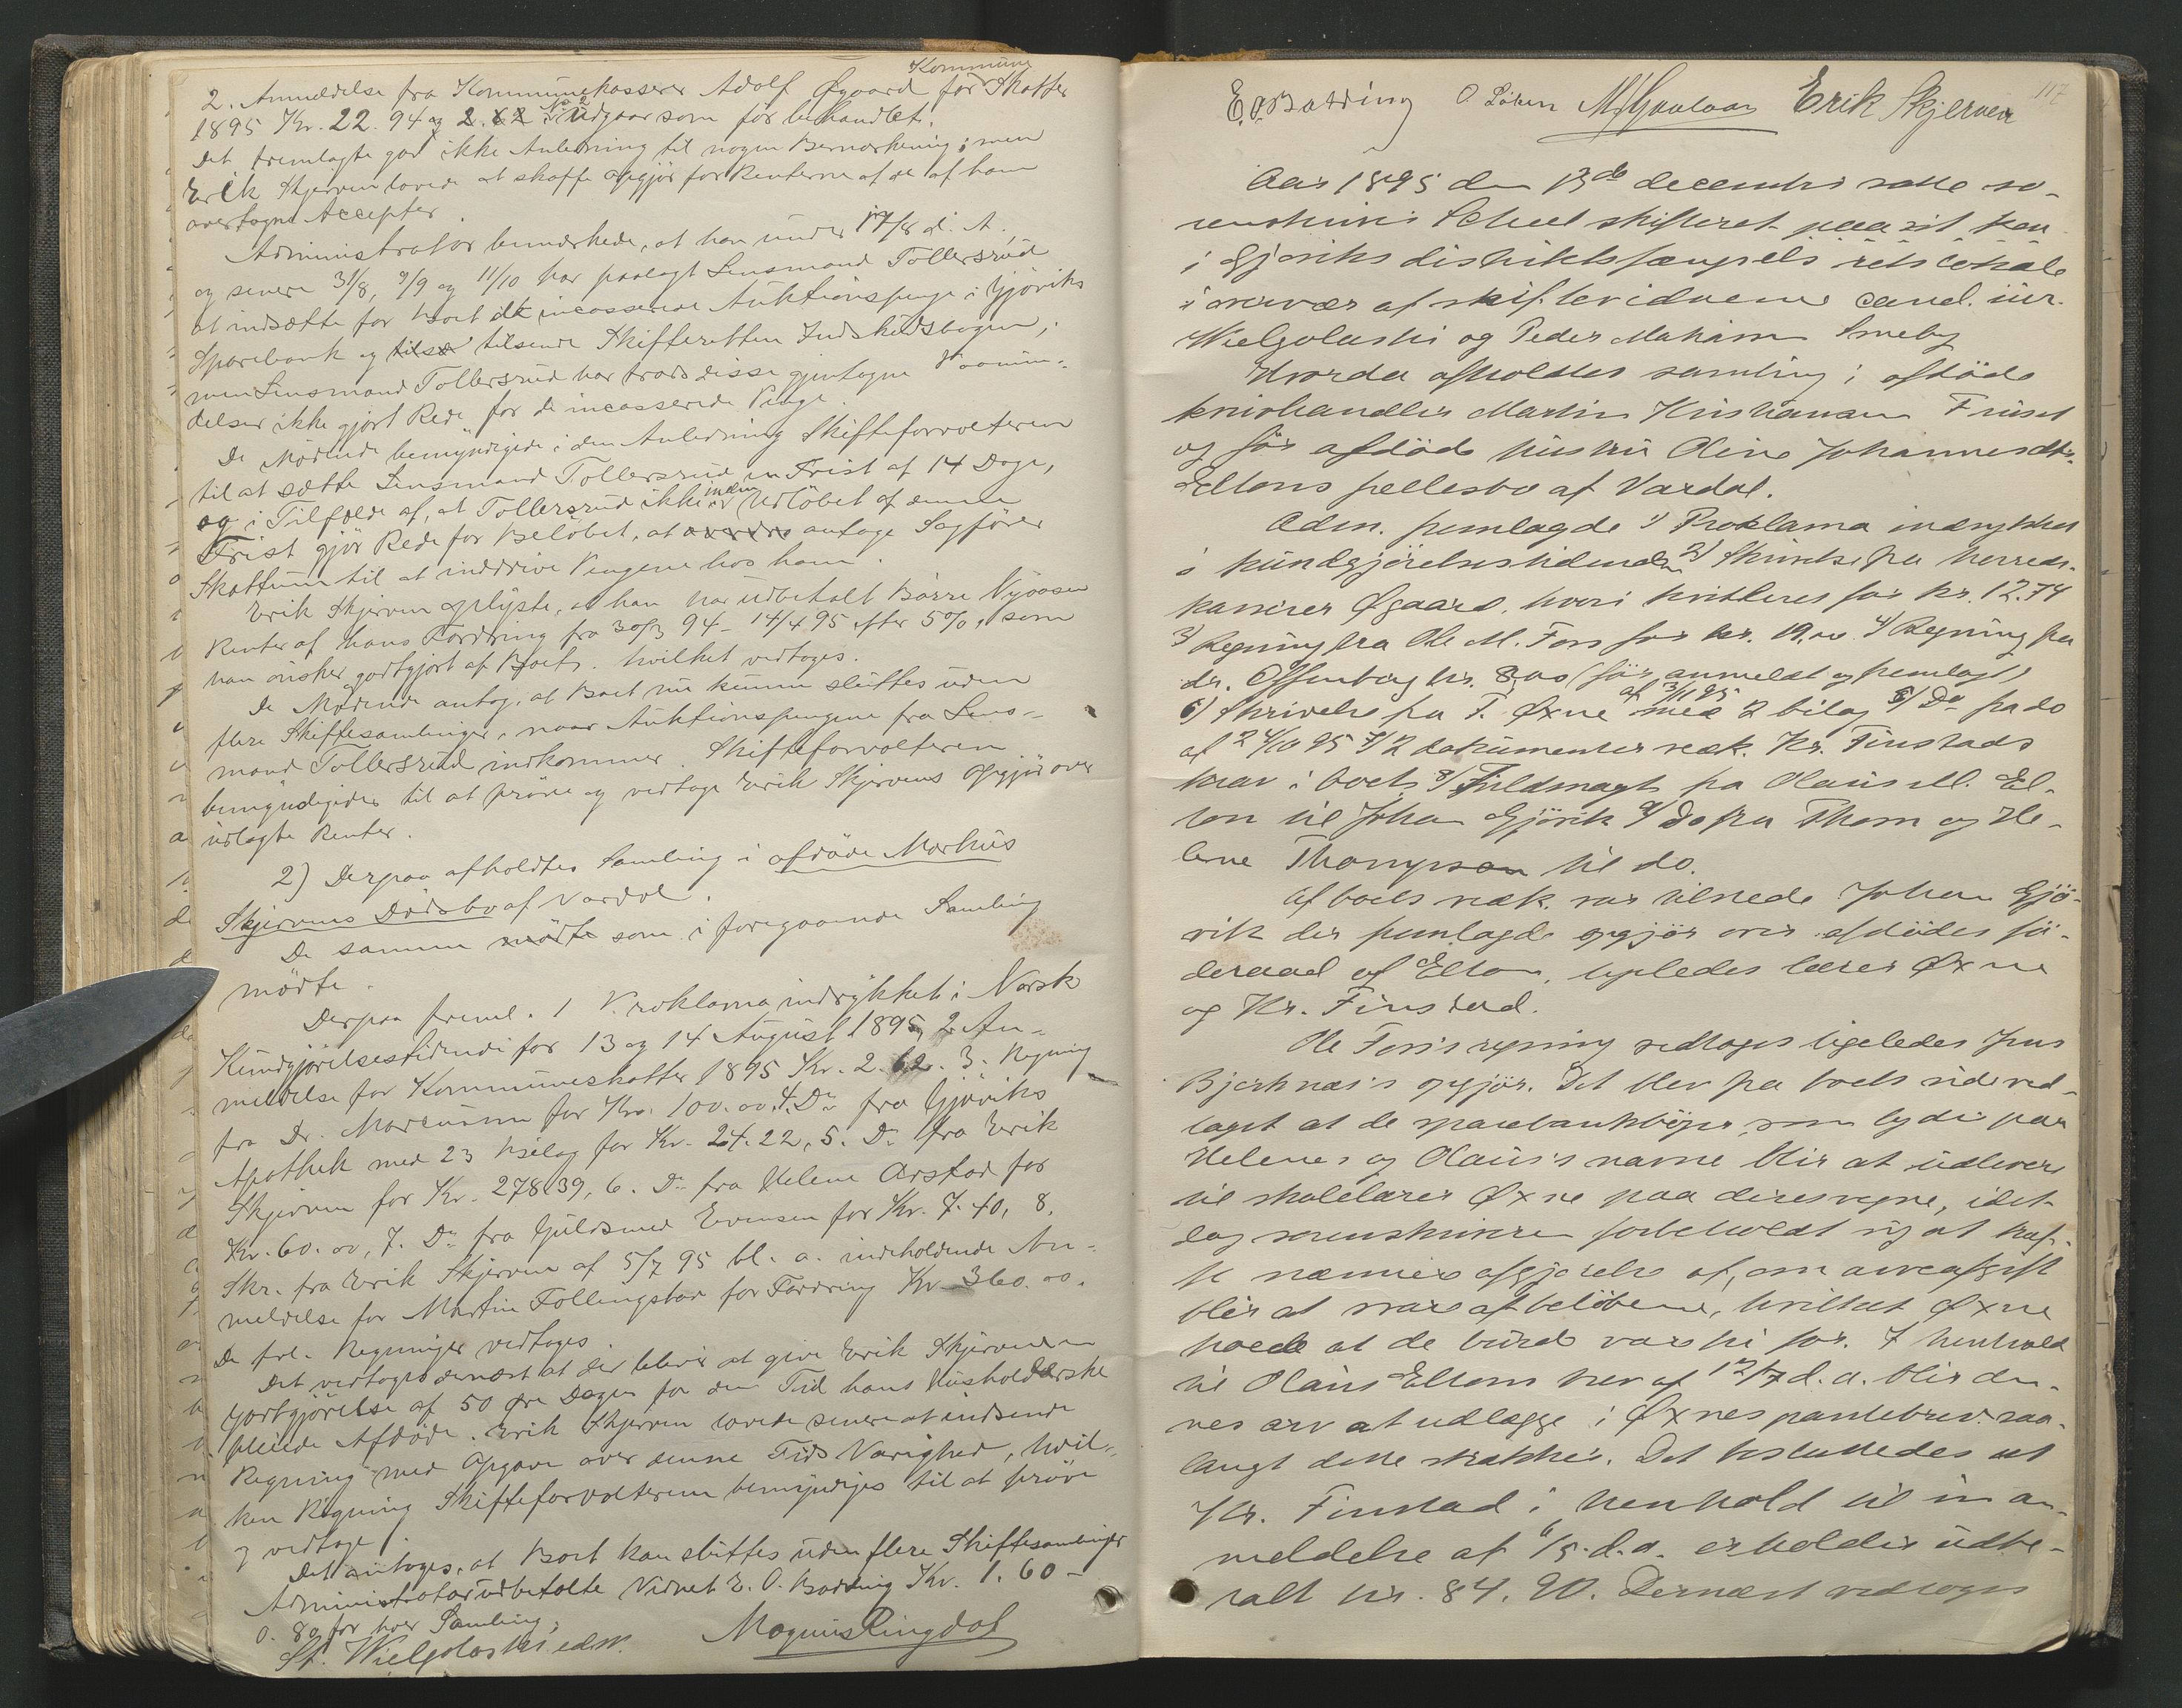 2. Anmeldelse fra Kommunekasserer Adolf Øgaard for Kommune Skatter
1895 Kr. 22.94 og 2.62 No 2 Udgaar som før behandlet.
Det fremlagte gav ikke Anledning til nogen Bemærkning; men
Erik Skjerven lovede at skaffe Opgjør for Renterne af de af ham
overtagne Accepter.
Administrator bemærkede, at han under 17/8 d. A.
og senere 31/8, 9/9 og 11/10 har paalagt Lensmand Tollersrud
at indsætte for Boet incasserede Auktionspenge i Gjøviks
Sparebank og tilsende Skifteretten Indskudsbogen;
men Lensmand Tollersrud har trods disse gjentagne Paamin-
delser ikke gjort Rede for de incasserede Penge.
De Mødende bemyndigede i den Anledning Skifteforvalteren
til at sætte Lensmand Tollersrud en Frist af 14 Dage,
og i Tilfælde af, at Tollersrud ikke inden Udløbet af denne
Frist gjør Rede for Beløbet, at antage Sagfører
Skattum til at inddrive Pengene hos ham.
Erik Skjerven oplyste, at han har udbetalt Børre Nyøosen
Renter af hans Fordring fra 30/3 94 - 14/4 95 efter 5%, som
han ønsker godtgjort af Boet. hvilket vedtoges.
De Mødende antog, at Boet nu kunde sluttes uden
flere Skiftesamlinger, naar Auktionspengene fra Lens-
mand Tollersrud indkommer. Skifteforvalteren
bemyndigedes til at prøve og vedtage Erik Skjervens Opgjør over
udlagte Renter.
2) Derpaa afholdtes Samling i afdøde Markus
Skjervens Dødsbo af Vardal.
De samme mødte som i foregaaende Samling
mødte.
Derpaa freml. 1 Proklama indrykket i Norsk
Kundgjørelsestidende for 13 og 14 August 1895, 2 An-
meldelse for Kommuneskatter 1895 Kr. 2.62. 3. Regning
fra Dr. Marcussen for Kr. 100.00, 4. Do fra Gjøviks
Apothek med 23 Bilag for Kr. 24.22, 5. Do fra Erik
Skjerven for Kr. 278.39, 6. Do fra Helene Arstad for
Kr. 60.00, 7. Do fra Guldsmed Evensen for Kr. 7.40, 8.
Skr. fra Erik Skjerven af 5/7 95 bl. a. indeholdende An-
meldelse for Martin Follingstad for Fordring Kr 360.00.
De frl. Regninger vedtoges.
Det vedtoges dernæst at der bliver at give Erik Skjerven en
Godtgjørelse af 50 Øre Dagen for den Tid hans Husholderske
pleiede Afdøde. Erik Skjerven lovede senere at indsende
Regning med Opgave over denne Tids Varighed, hvil-
ken Regning Skifteforvalteren bemyndiges til at prøve
og vedtage.
Det antoges, at Boet kan sluttes uden flere Skiftesamlinger
Administrator udbetalte Vidnet E. O. Badding Kr. 1.60 -
0.80 for hver Samling,
St. Wielgolaski edsv. Magnus Ringdal
117
E. O. Badding O Løken Erik Skjerven
Aar 1895 den 13de december satte so-
renskriver Scheel skifteret paa sit kon
i Gjøviks distriktsfængsels retslokale
i overvær af skiftevidnerne cand. jur.
Wielgolaski og Peder Smeby
Hvorda afholdtes samling i afdøde
Martin Kristiansen
og før afdøde hustru Oline Johannesdtr.
Eltons fællesbo af Vardal.
Adm. fremlagde 1) Proklama indrykket
i kundgjørelsestidenden 2) Skrivelse fra herreds-
kasserer Øgaard, hvori kvitteres for kr. 12.74
3) Regning fra Ole M. Foss for kr. 19.00 4) Regning fra
dr. Offenberg kr. 8,00 (før anmeldt og fremlagt)
5) Skrivelse fra T. Øxne af 3/1 95 med 2 bilag 6) Do fra do
af 24/10 95 7) 2 dokumenter vedk. Kr. Finstads
krav i boet 8) Fuldmagt fra Olaus M. El-
ton til Johan Gjørik 9) Do fra Thom og He-
lene Thompson til do.
Af boets vedk. var tilstede Johan Gjø-
vik der fremlagde opgjør over afdødes fø-
deraad af Elton, ligeledes lærer Øxne
og Kr. Finstad.
Ole Foss's regning vedtoges ligeledes Jens
Bjerknæs's opgjør. Det blev fra boets side ved-
taget at de sparebankbøger som lyder paa
Helenes og Olaus's navne blir at udlevere
til skolelærer Øxne paa deres vegne, idet
dog sorenskriveren forbeholdt sig at træf-
fe nærmere afgjørelse af, om arveafgift
blir at svare af beløbene, hvilket Øxne
paastod at de burde være fri for. I henhold
til Olaus Eltons brev af 12/7 d. a. blir den-
nes arv at udlægge i Øxnes pantebrev saa-
langt dette strækker. Det besluttedes at
Kr. Finstad i henhold til sin an-
meldelse af 11/5 d. a. erholder udbe-
talt kr. 84.90. Dernæst vedtoges